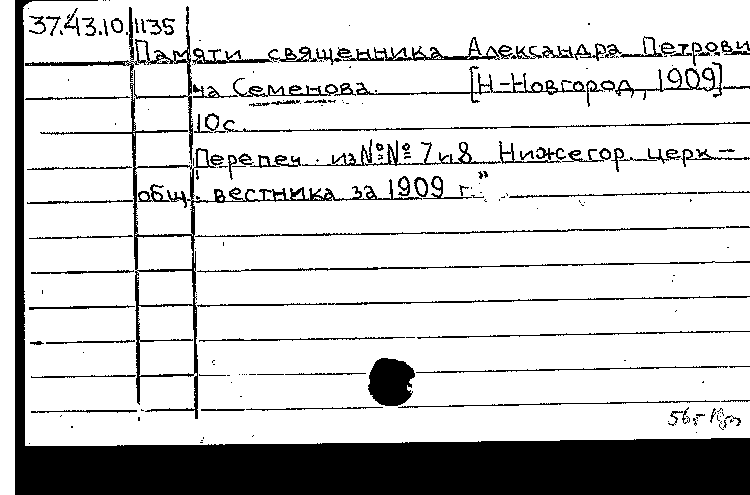 37.43.10.1135
Памяти священника Александра Петрови
ча Семенова. [Н-Новгород, 1909]
10с.
Перепеч. из №№ 7 и 8 Нижегор. церк –
общ. вестника за 1909 г."